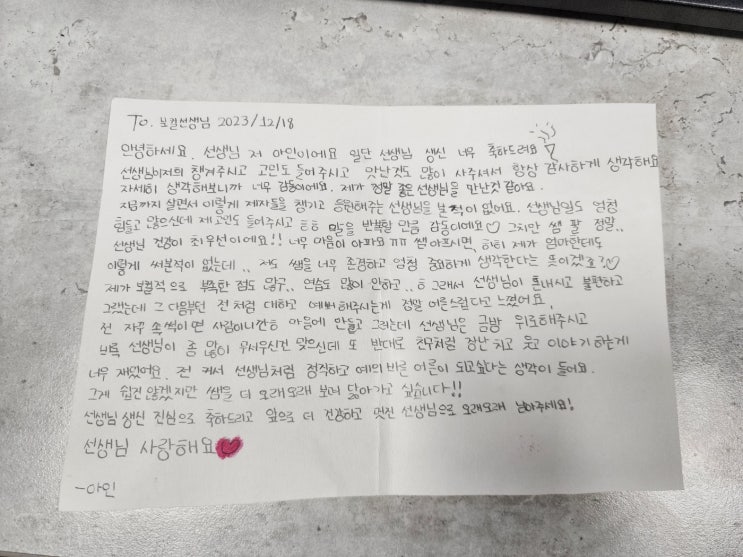 To. 보컬선생님 2023/12/18
안녕하세요. 선생님 저 아인이에요 일단 선생님 생신 너무 축하드려요
선생님이저희 챙겨주시고 고민도 들어주시고 맛난것도 많이 사주셔서 항상 감사하게 생각해요
자세히 생각해보니까 너무 감동이에요. 제가 정말 좋은 선생님을 만난것 같아요.
지금까지 살면서 이렇게 제자들을 챙기고 응원해주는 선생님을 본적이 없어요. 선생님일도 엄청
힘들고 많으신데 제고민도 들어주시고 ㅎㅎ 말을 반복할 만큼 감동이에요♡ 그치만 쌤 팔 정말..
선생님 건강이 최우선이에요!! 너무 마음이 아파요 ㅠㅠ 쌤 아프시면, 하티 제가 엄마한테도
이렇게 써본적이 없는데.. 저도 쌤을 너무 존경하고 엄청 중요하게 생각한다는 뜻이겠죠?♡
제가 보컬적으로 부족한 점도 많구.. 연습도 많이 안하고..ㅎ 그래서 선생님이 혼내시고 불편하고
그랬는데 그 다음부턴 전처럼 대하고 예뻐해주시는게 정말 어른스럽다고 느꼈어요.
전 자꾸 속썩이면 사람이니깐ㅎ 마음에 안들고 그러는데 선생님은 금방 위로해주시고
비록 선생님이 좀 많이 무서우신건 맞으신데 또 반대로 친구처럼 장난치고 웃고 이야기하는게
너무 재밌어요. 전 커서 선생님처럼 정직하고 예의바른 어른이 되고싶다는 생각이 들어요.
그게 쉽진 않겠지만 쌤을 더 오래오래 보며 닮아가고 싶습니다!!
선생님 생신 진심으로 축하드리고 앞으로 더 건강하고 멋진 선생님으로 오래오래 남아주세요!
선생님 사랑해요
-아인